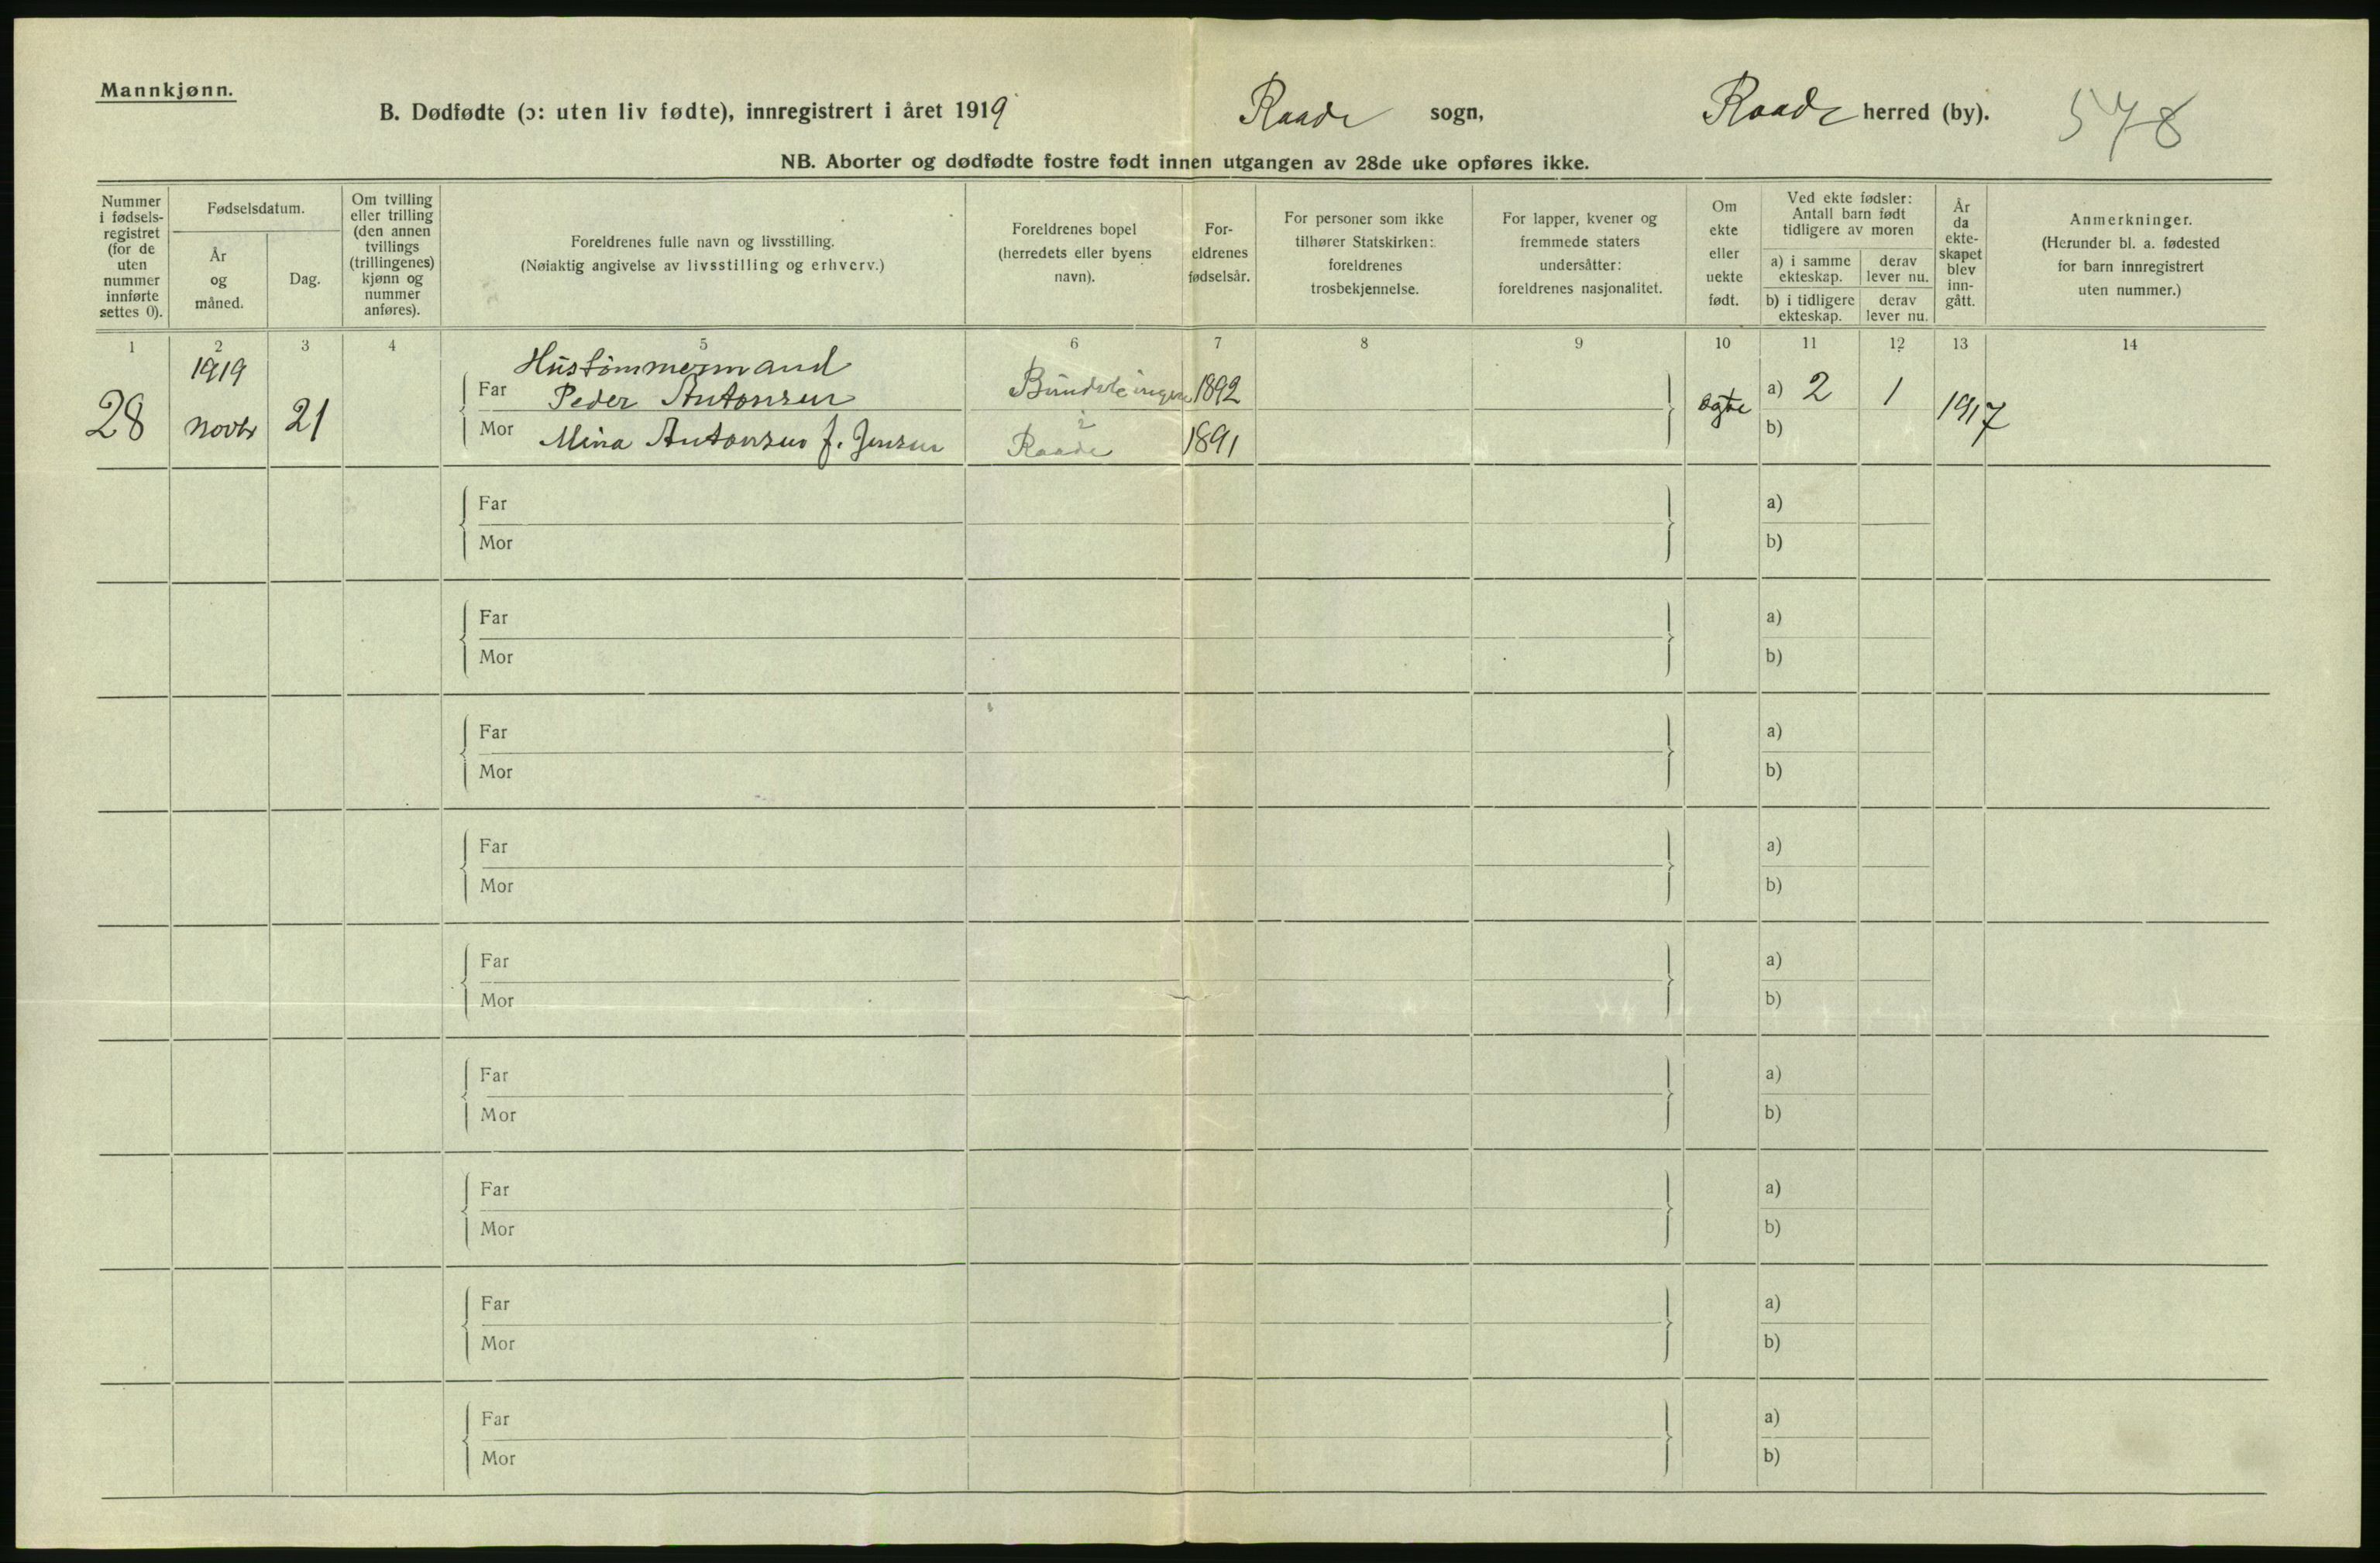 Mannkjønn.
B. Dødfødte (ɔ: uten liv fødte), innregistrert i året 1919 Raade sogn, Raade herred (by). 578
NB. Aborter og dødfødte fostre født innen utgangen av 28de uke opføres ikke.
Nummer i fødsels- registret (for de uten nummer innførte settes 0).
Fødselsdatum.
År og måned.
Dag.
Om tvilling eller trilling (den annen tvillings (trillingenes) kjønn og nummer anføres).
Foreldrenes fulle navn og livsstilling.
(Nøiaktig angivelse av livsstilling og erhverv.)
Foreldrenes bopel (herredets eller byens navn).
For- eldrenes fødselsår.
For personer som ikke tilhører Statskirken: foreldrenes trosbekjennelse.
For lapper, kvener og fremmede staters undersåtter: foreldrenes nasjonalitet.
Om ekte eller uekte født.
Ved ekte fødsler: Antall barn født tidligere av moren
a) i samme ekteskap.
derav lever nu.
b) i tidligere ekteskap.
derav lever nu.
År da ekte- skapet blev inn- gått.
Anmerkninger.
(Herunder bl. a. fødested for barn innregistrert uten nummer.)
1 2 3 4 5 6 7 8 9 10 11 12 13 14
1919 Hustømmermand
Far Peder Antonsen 1892 a) 2 1
28 Novbr 21 ægte 1917
Mor Mina Antonsen f. Jensen Raade 1891 b)
Far a)
Mor b)
Far a)
Mor b)
Far a)
Mor b)
Far a)
Mor b)
Far a)
Mor b)
Far a)
Mor b)
Far a)
Mor b)
Far a)
Mor b)
Far a)
Mor b)